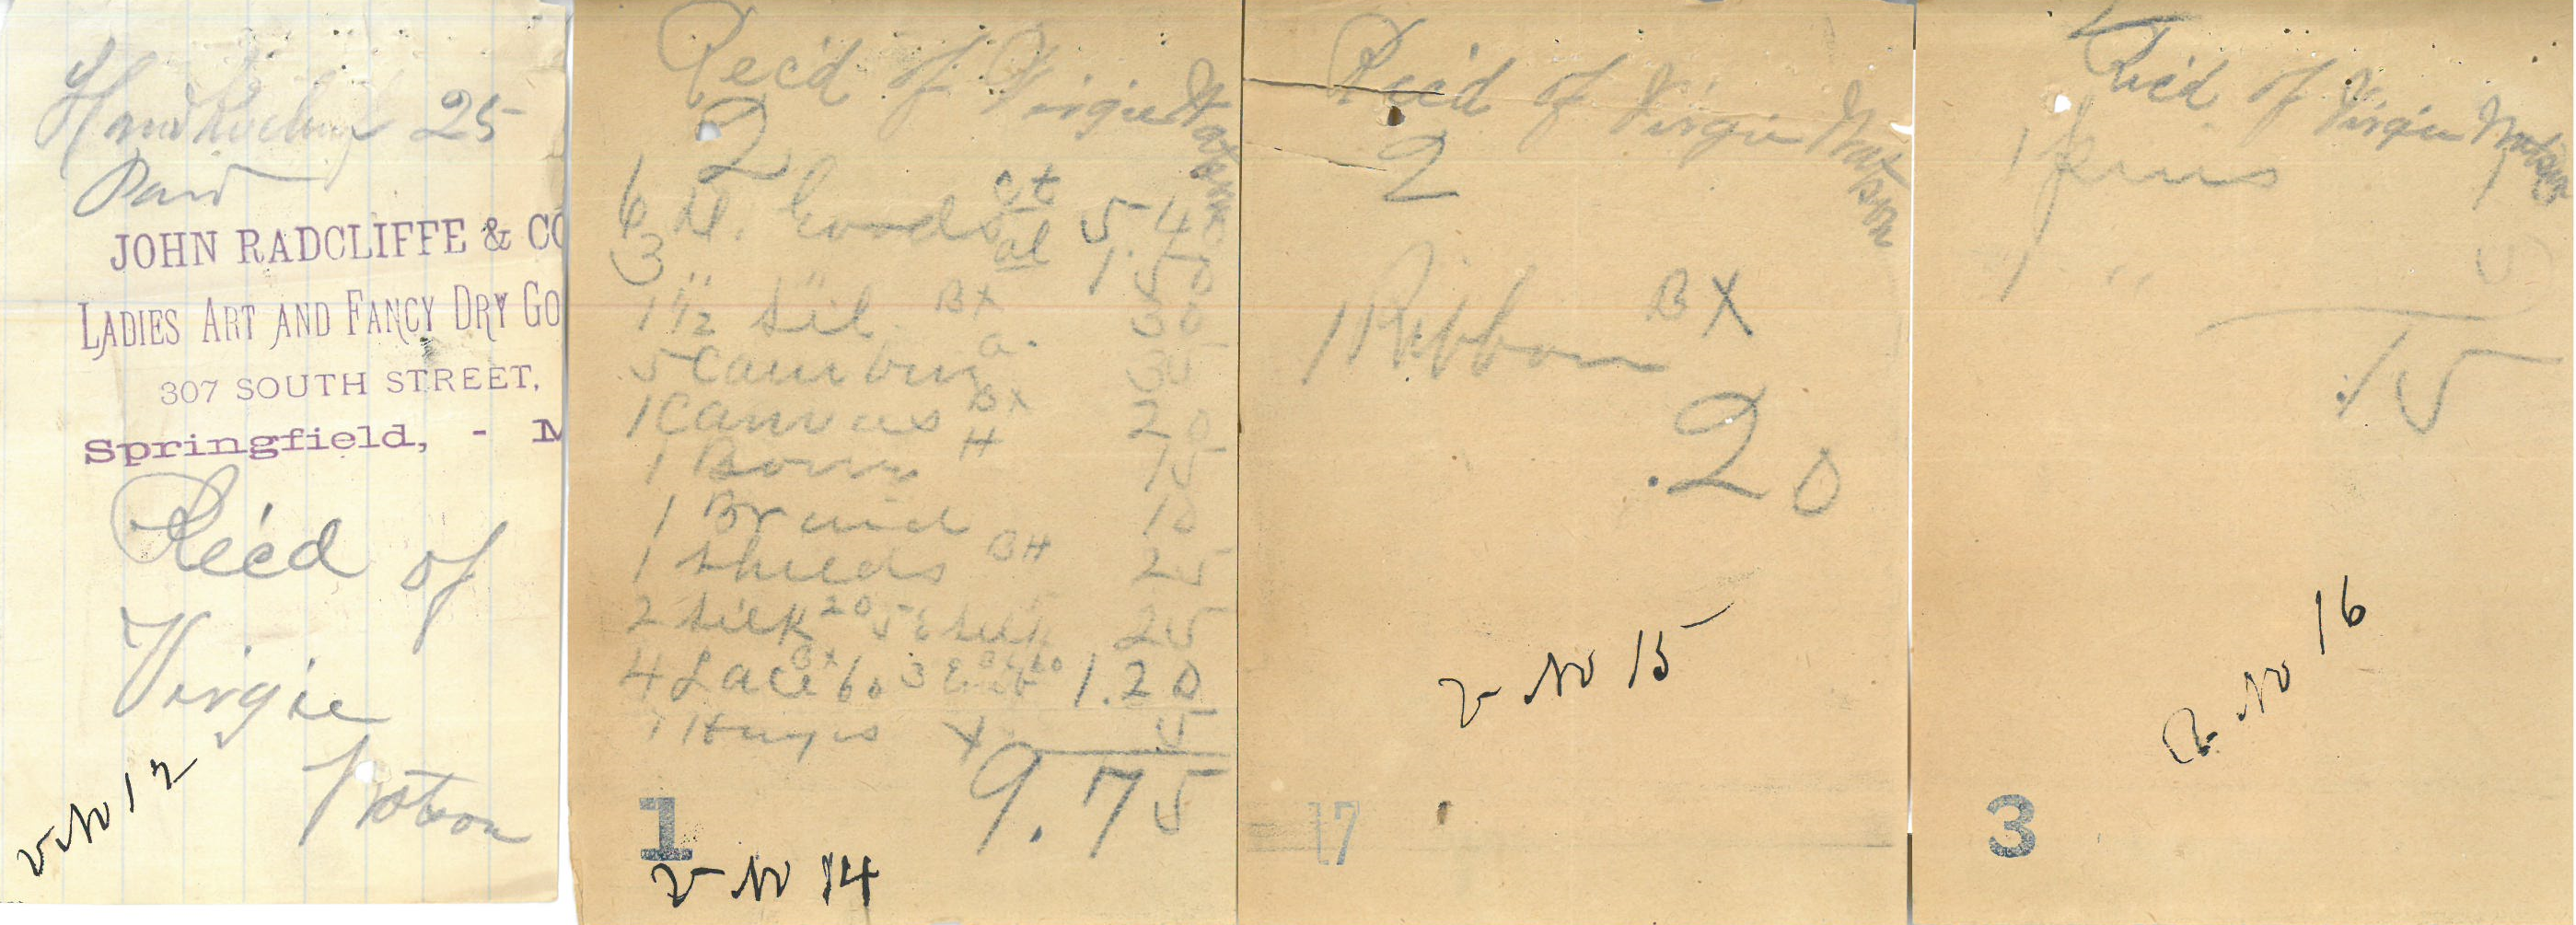 Handkerchief 25
Paid
JOHN RADCLIFFE & CO
LADIES ART AND FANCY DRY GO
307 SOUTH STREET,
Springfield, - M
Rec'd of
Virgie
Watson
v No 12
Rec'd of Virgie Watson
2
6 D. Goods at 5.40
3 " " al 1.50
1 1/2 Sil. BX 30
5 Cambric a. 35
1 Canvas BX 20
1 H 15
1 Braid 10
1 Shields BH 25
2 Silk 20 5 Silk 25
4 Lace BX 60 3 60 1.20
1 X 5
9.75
1
v No 14
Rec'd of Virgie Watson
2
1 Ribbon BX
.20
17
v No 15
Rec'd of Virgie Watson
1 pins
1 " 5
.15
No 16
3